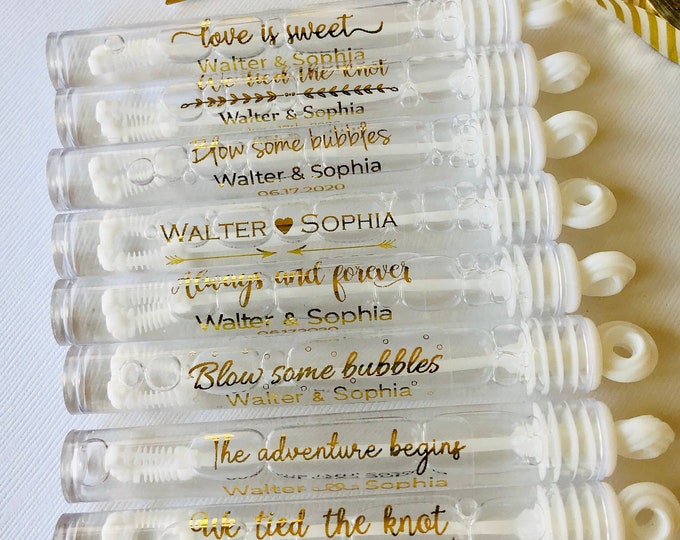 Love is sweet
Walter & Sophia
We tied the knot
Walter & Sophia
Blow some bubbles
Walter & Sophia
06.17.2020
WALTER SOPHIA
Always and forever
Walter & Sophia
06.17.2020
Blow some bubbles
Walter & Sophia
The adventure begins
Walter & Sophia
We tied the knot